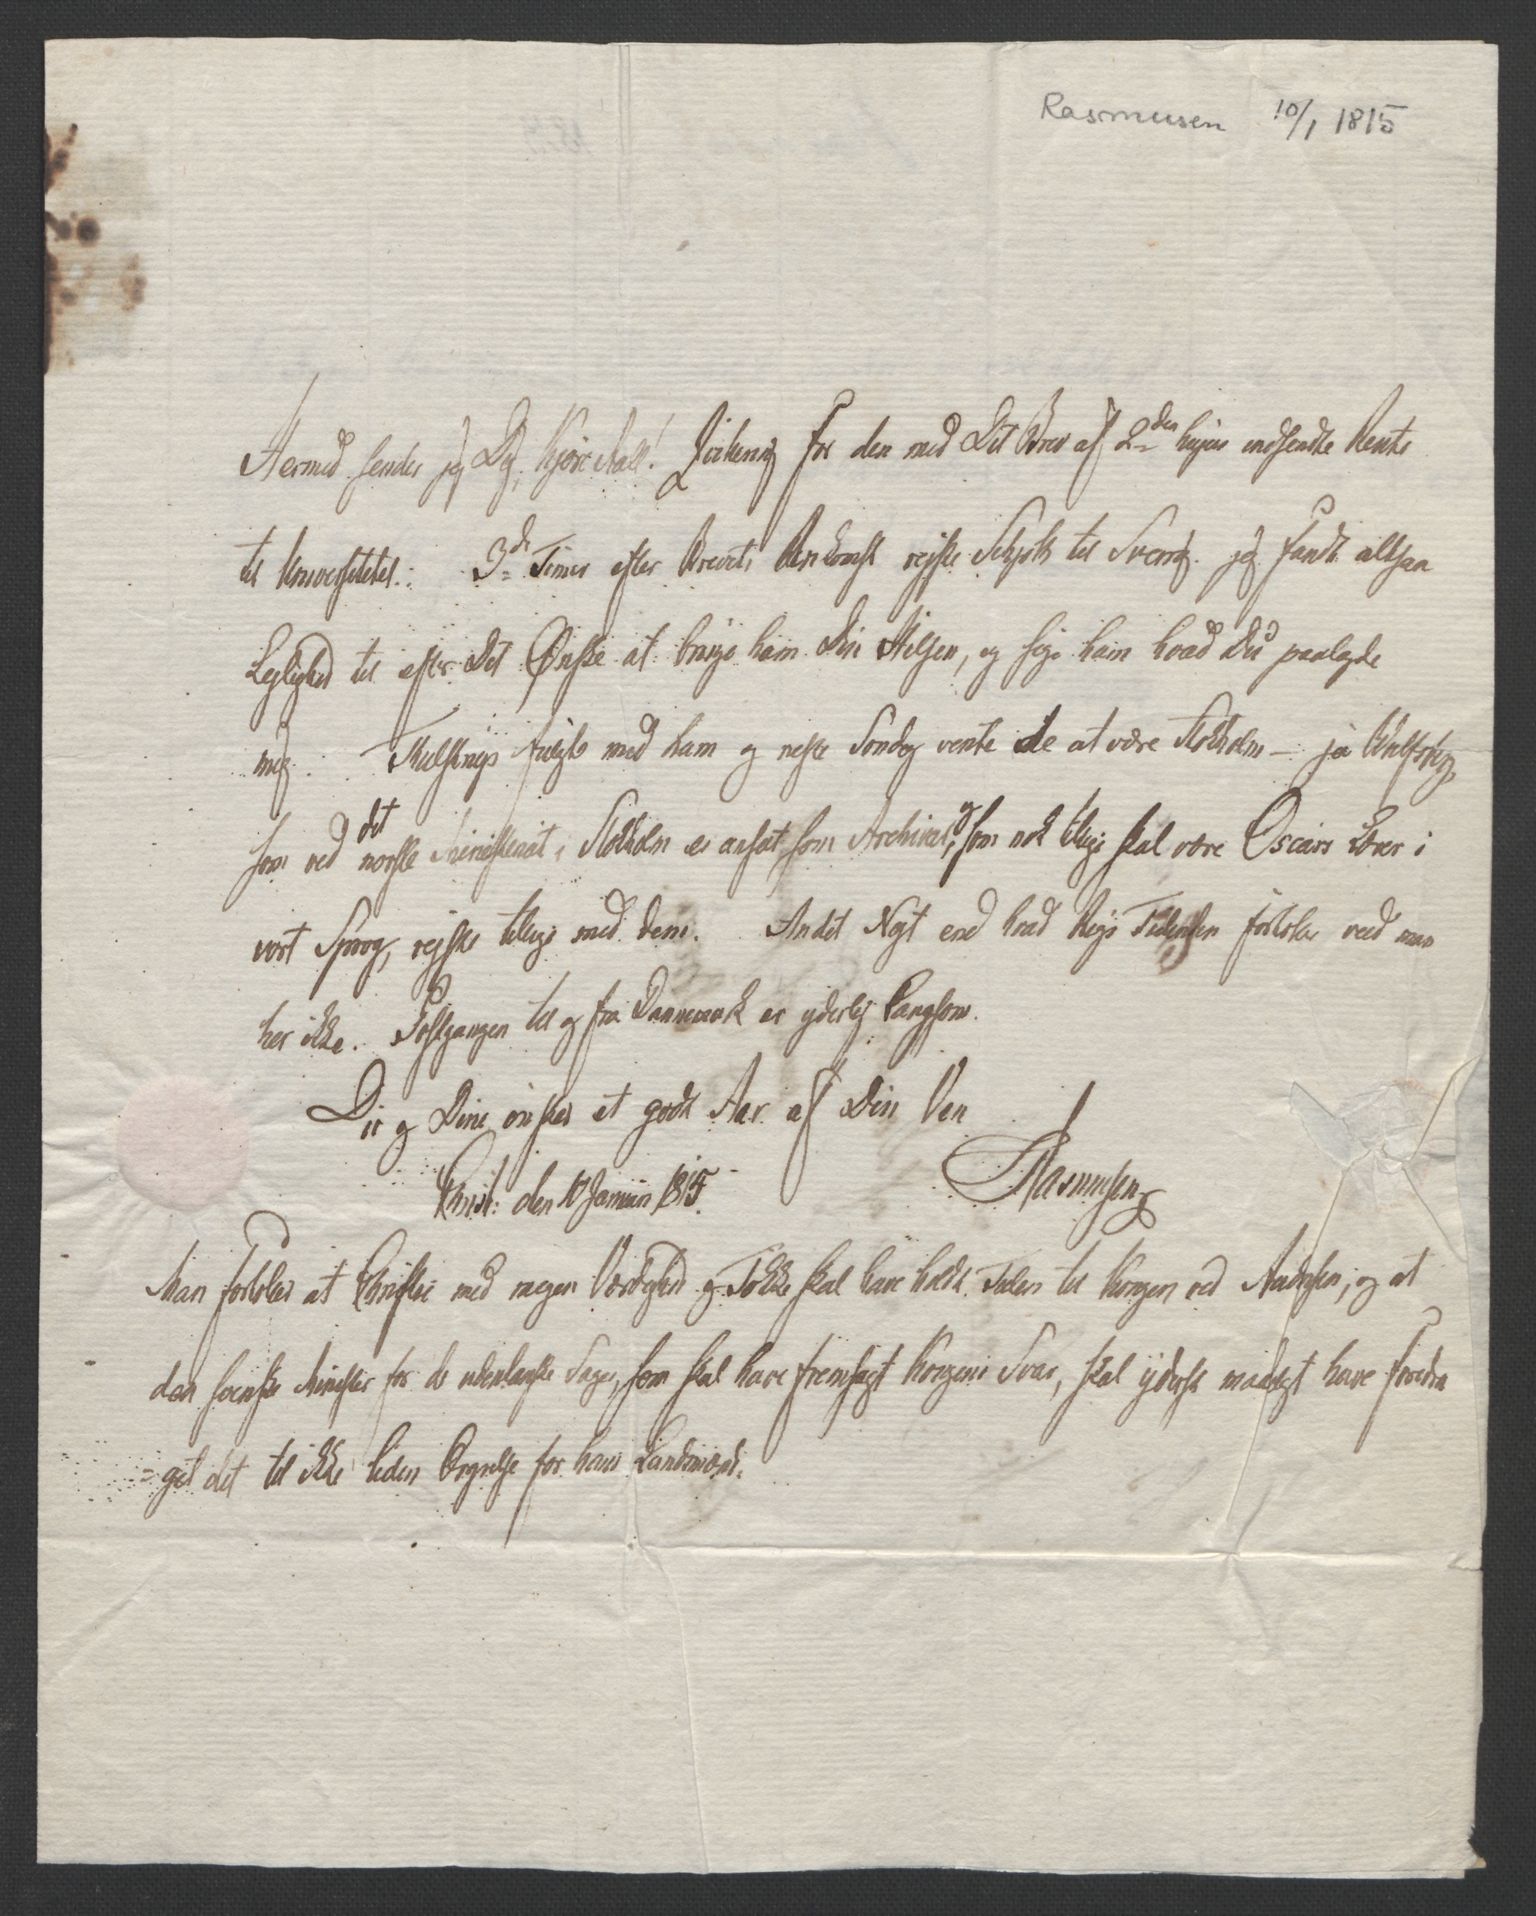 Rasmusen 10/1 1815
Hermed sender jeg Dig, Kjære Aall! Qvitering for den med Dit Brev af 2den hujus indsendte Rente
til Universitetet. 3de Timer efter Brevets Ankomst rejste til Sverig. jeg fandt altsaa
Lejlighed til efter Dit Ønske at bringe ham Din Hilsen, og sige ham hvad Du paalagde
mig. fulgte med ham og neste Søndag vente de at være i Stokholm – ja Wulfsberg,
som ved det norske Ministeriat i Stokholm er ansat som Archivar, og som nok tillige skal være Oscars Lærer i
vort Sprog, rejste tillige med dem. Andet Nyt end hvad Rigs Tidenden fortæller veed man
her ikke. Postgangen til og fra Dannemark er yderlig langsom.
Dig og Dine ønskes et godt Aar af Din Ven
Christ: den 10 Januar 1815. Rasmusen
Man fortæller at Christie med megen Værdighed og Tække skal have holdt Talen til Kongen ved Audiensen, og at
den svenske Minister for de udenlanske Sager, som skal have fremsagt Kongens Svar, skal yderst maadeligt have foredra
=get det til ikke liden Ærgrelse for hans Landsmænd.